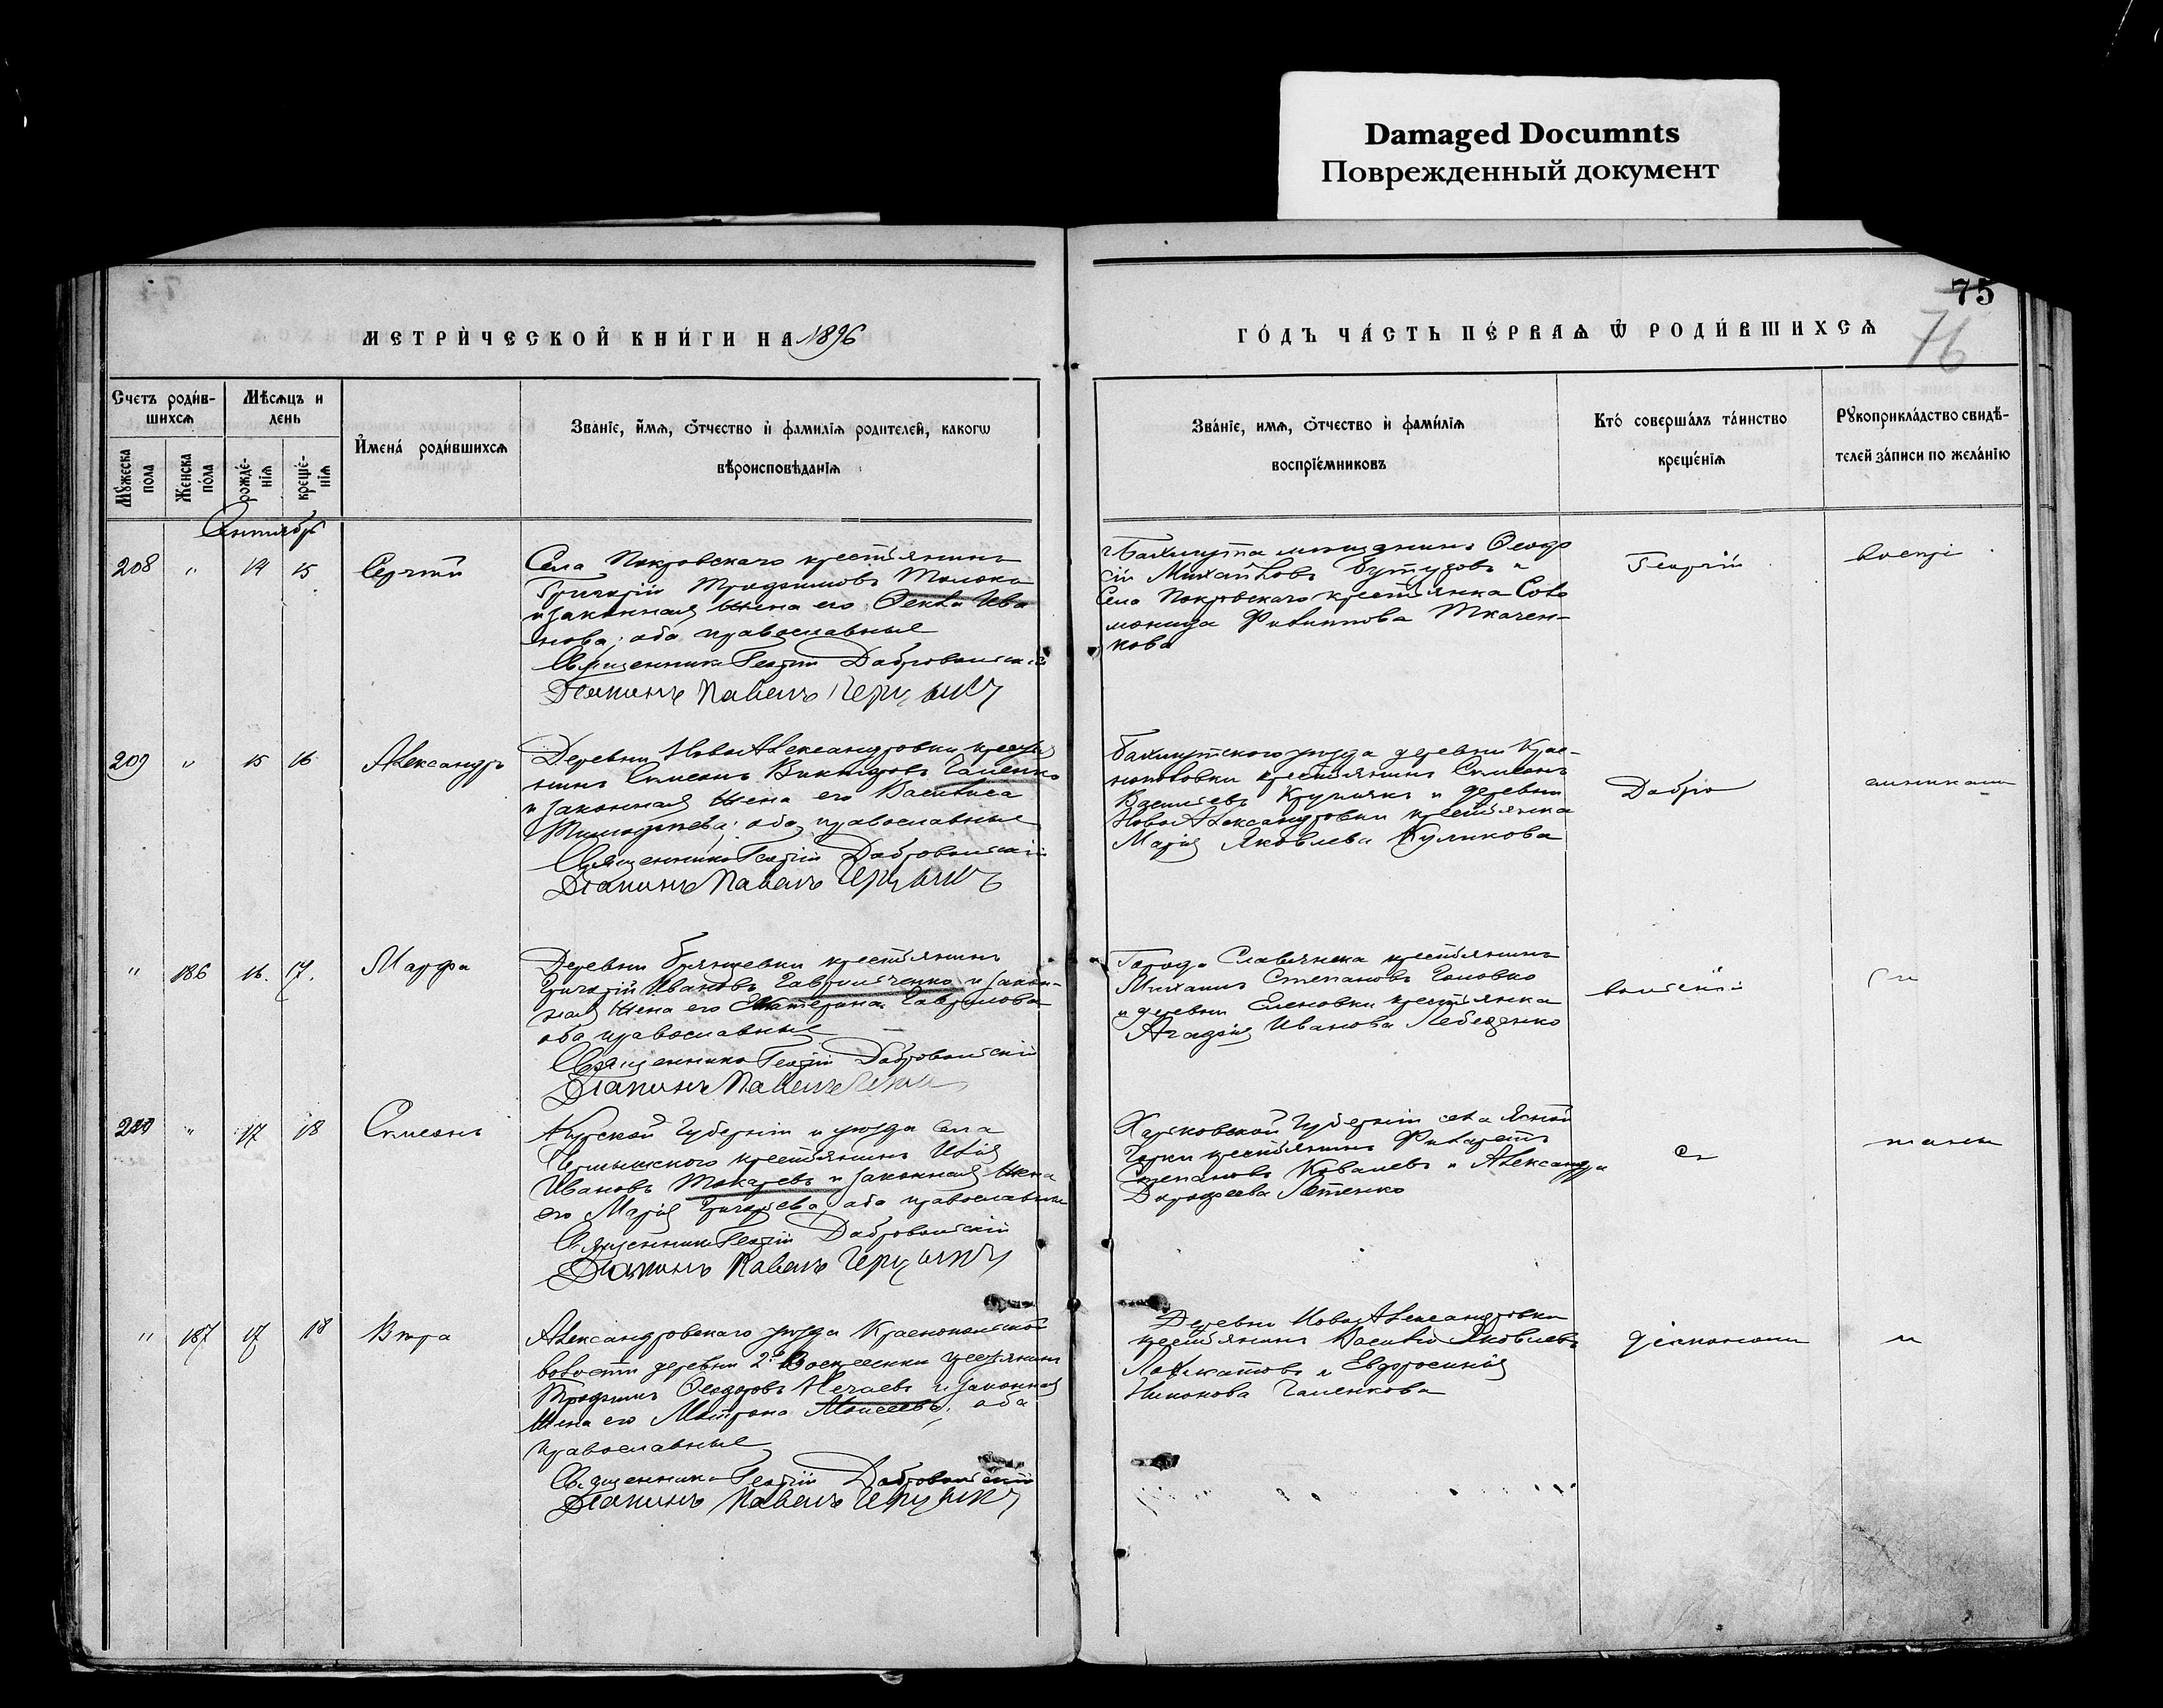 Damaged Documnts
Поврежденный документ
75
76
МЕТРИ́ЧЕСКОЙ КНИ́ГИ НА 1896
ГО́ДЪ ЧА́СТЬ ПЕ́РВАѦ Ѿ РОДИ́ВШИХСѦ
Счетъ роди́в-
шихсѧ
Мѣсѧцъ и
день
Мꙋжеска
пола
Женска
по́ла
рожде́-
нїѧ
креще́-
нїѧ
И҆мена́ роди́вшихсѧ
Зва́нїе, и҆́мѧ, ѻ҆́тчество и҆ фамилїѧ родителей, какогѡ
вѣроисповѣданїѧ
Зва́нїе, имѧ, ѻ҆́тчество и҆ фами́лїѧ
воспрїе́мниковъ
Кто́ соверша́лъ та́инство
креще́нїѧ
Рꙋкоприкла́дство свидѣ́-
телей за́писи по жела́нїю
Сентябрь
208 " 14 15 Сергѣй
Села Покровскаго крестьянинъ
Григорій Трофимовъ Молока
и законная жена его Ѳекла Ива
нова; оба православные
Священникъ Георгій Добровольскій
Діаконъ Павелъ
г. Бахмута мещанинъ Ѳеодо
сій Михайловъ Бутузовъ и
Села Покровскаго крестьянка Соло
монида Филиппова Ткачен-
кова
Георгій
209 " 15 16 Александръ
Деревни НовоАлександровки крестья
нинъ Симеонъ Викторовъ Галенко
и законная жена его Василиса
Тимофеева; оба православные
Священникъ Георгій Добровольскій
Діаконъ Павелъ
Бахмутского уѣзда деревни Крас-
нополовки крестьянинъ Симеонъ
Васильевъ Круплякъ и деревни
НовоАлександровки крестьянка
Марія Яковлева Куликова
Добро
" 186 16. 17. Марфа
Деревни Брянцевки крестьянинъ
Григорій Ивановъ Гавриличенко и закон-
ная жена его Екатерина Гаврилова
оба православные
Священникъ Георгій Добровольскій
Діаконъ Павелъ
Города Славянска крестьянинъ
Михаилъ Степановъ Головко
и деревни Еленовки крестьянка
Агафія Иванова Лебеденко
вольскій
" 17 18 Симеонъ
Курской Губерніи и уѣзда Села
крестьянинъ Илія
Ивановъ Токаревъ и законная жена
его Марія Григорьева, оба православные
Священникъ Георгій Добровольскій
Діаконъ Павелъ
Харьковской Губерніи села Ясной
Горки крестьянинъ Филаретъ
Степановъ Ковалевъ и Александра
Дорофеева Летенко
съ
" 187 17 18 Вѣра
Александровскаго уѣзда Краснопольской
волости деревни 2й Воскресенки крестьянинъ
Трофимъ Ѳеодоровъ Нечаевъ и законная
жена его Матрона Моисеева, оба
православные
Священникъ Георгій Добровольскій
Діаконъ Павелъ
Деревни НовоАлександровки
крестьянинъ Василій Яковлевъ
и Евфросинія
Никонова Галенкова
діакономъ